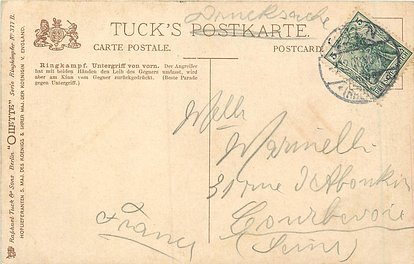 Drucksache
TUCK'S POSTKARTE.
CARTE POSTALE. POSTCARD.
Ringkampf. Untergriff von vorn. Der Angreifer
hat mit beiden Händen den Leib des Gegners umfasst, wird
aber am Kinn vom Gegner zurückgedrückt. (Beste Parade
gegen Untergriff.)
Raphael Tuck & Sons. Berlin. "OILETTE" Serie Ringkämpfer No. 377 B.
HOFLIEFERANTEN S. MAJ. DES KOENIGS & IHRER MAJ. DER KOENIGIN V. ENGLAND.
Melle
Marinelli
31 rue d'Aboukir
Courbevoie
(Seine)
France